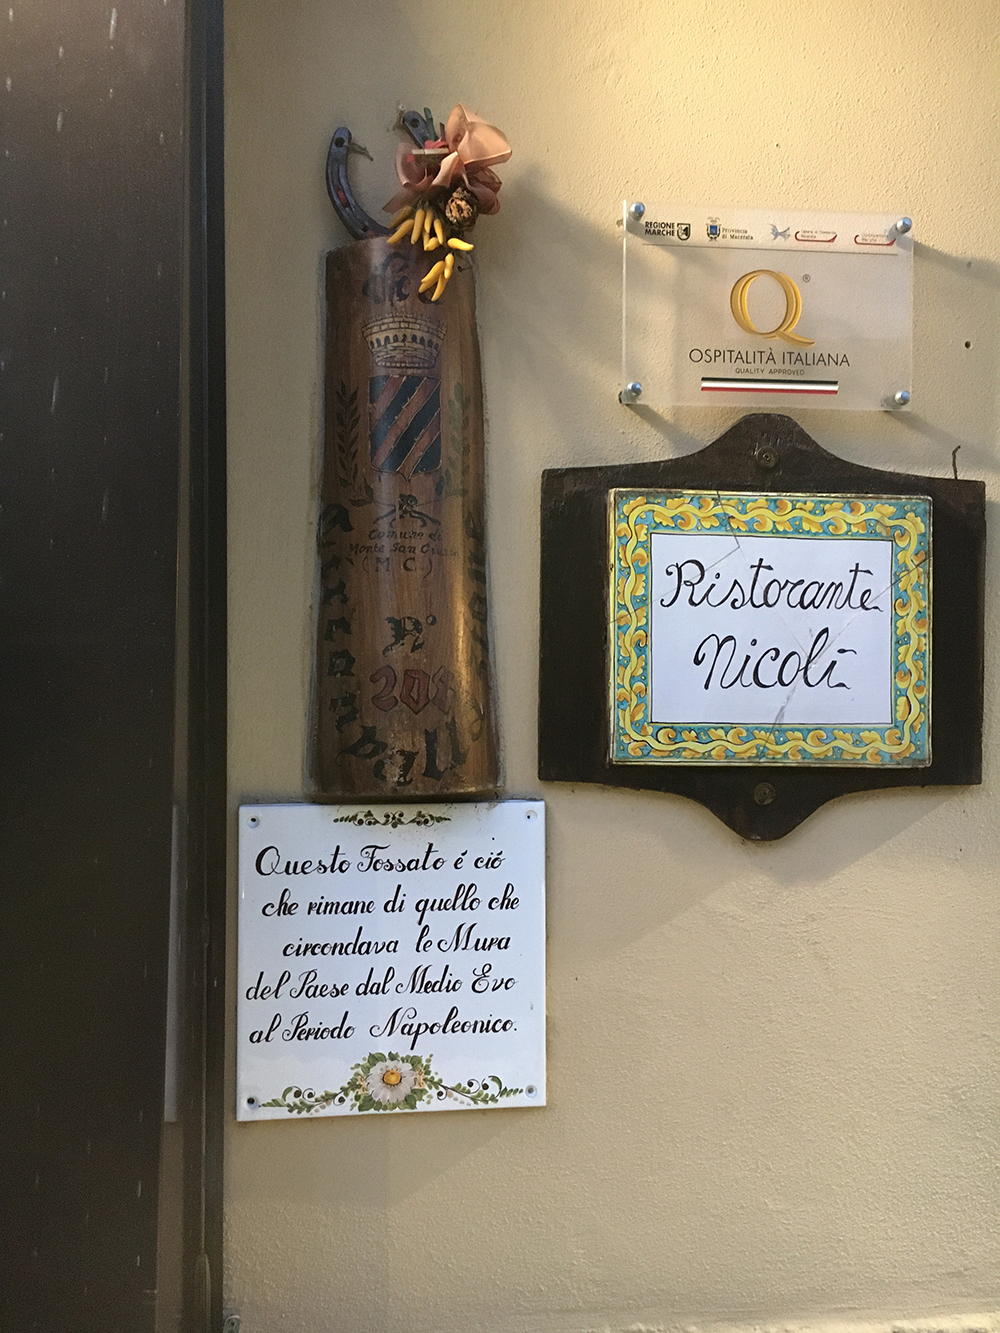 Via
Comune di
Monte San Giusto
(M C.)
N°
208
REGIONE
MARCHE
Provincia
di Macerata
Q®
OSPITALITÀ ITALIANA
QUALITY APPROVED
Ristorante
Nicolì
Questo Fossato é ció
che rimane di quello che
circondava le Mura
del Paese dal Medio Evo
al Periodo Napoleonico.